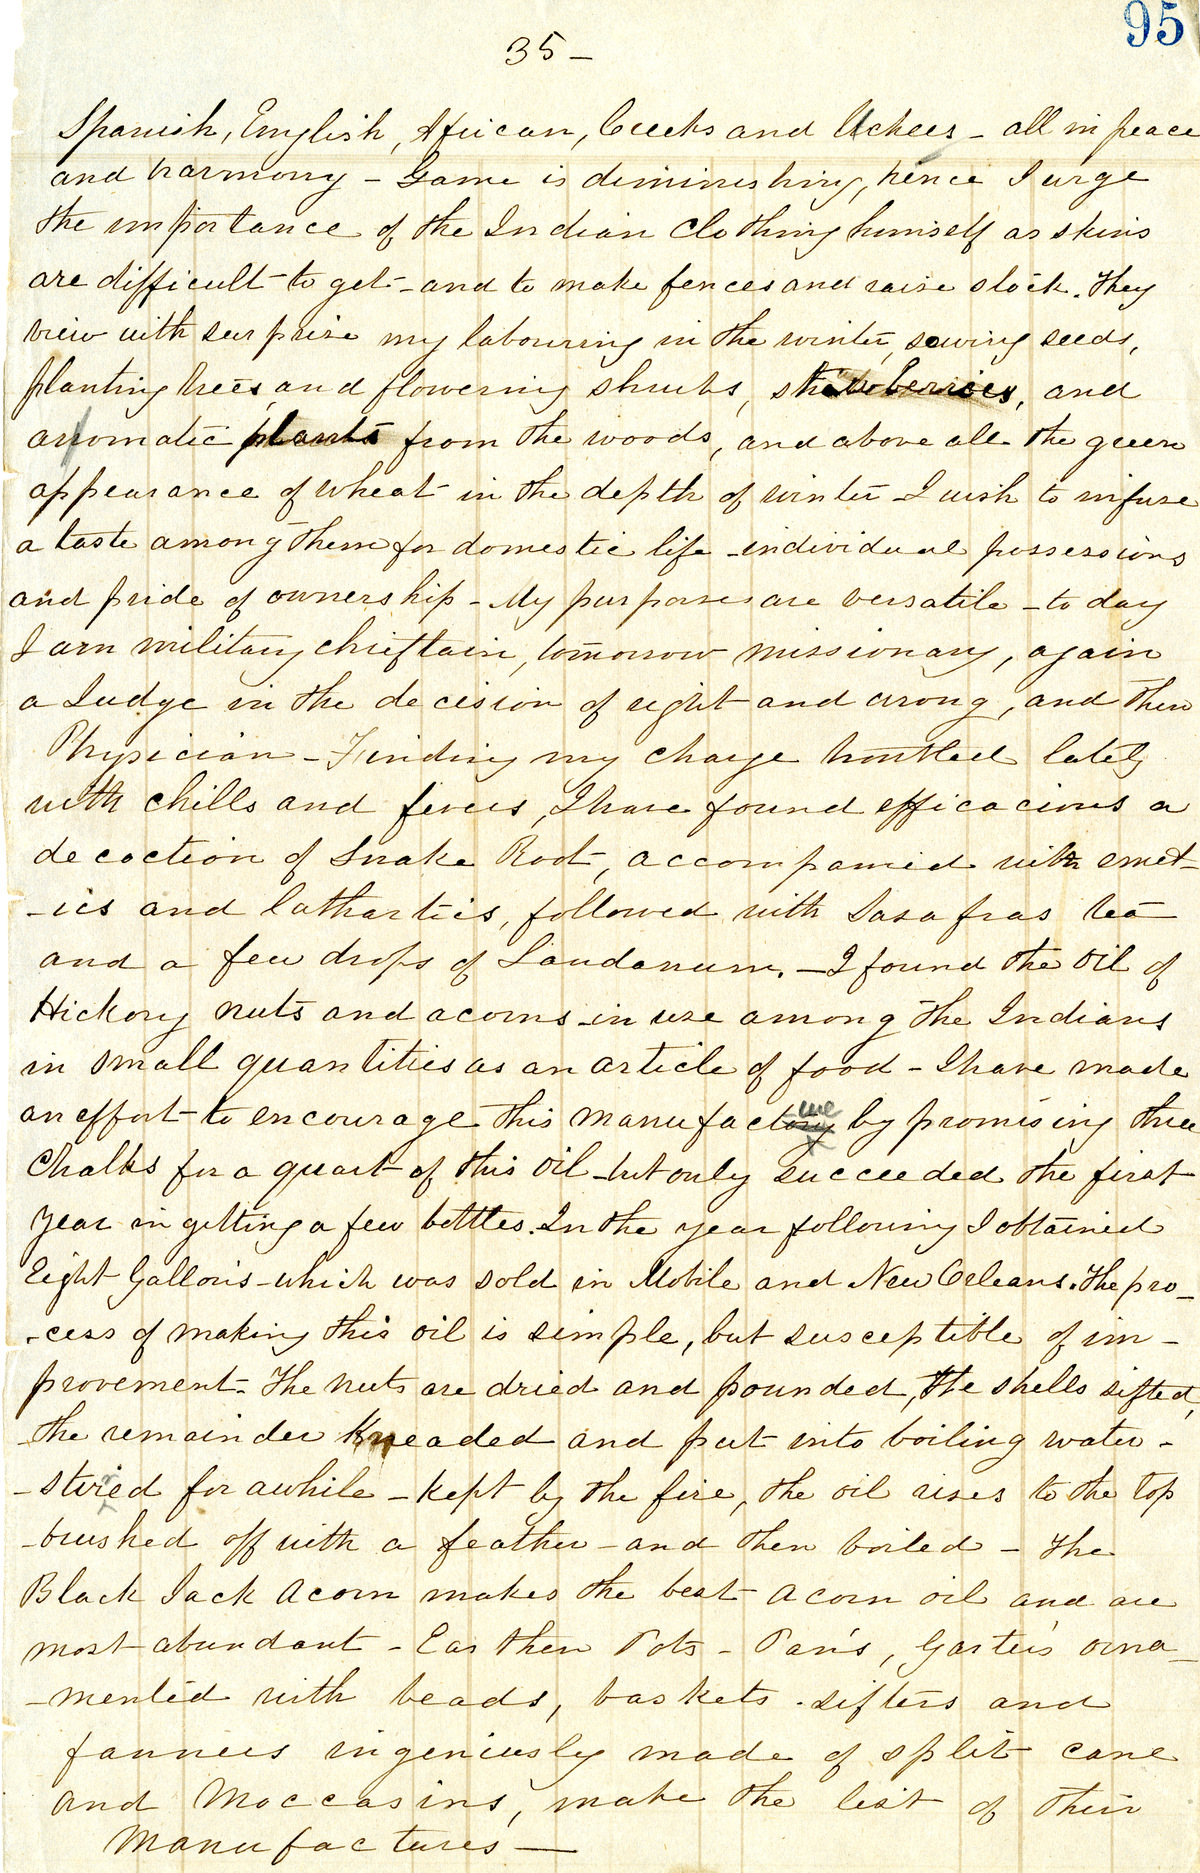 95
35 -
Spanish, English, African, Creeks and Uchees - all in peace
and harmony - Game is diminishing, hence I urge
the importance of the Indian clothing himself as skins
are difficult to get - and to make fences and raise stock. They
view with surprise my labouring in the winter, sowing seeds,
planting trees, and flowering shrubs, strawberries, and
arromatic plants from the woods, and above all the green
appearance of wheat in the depth of winter - I wish to infuse
a taste among them for domestic life - individual possessions
and pride of ownership - My purposes are versatile - to day
I am military chieftain, tomorrow missionary, again
a Judge in the decision of right and wrong, and then
Physician - Finding my charge troubled lately
with chills and fevers, I have found efficacious a
decoction of Snake Root, accompanied with emet-
-ics and Cathartics, followed with Sasafras tea
and a few drops of Laudanum. - I found the oil of
Hickory nuts and acorns in use among the Indians
in small quantities as an article of food - I have made
an effort to encourage this manufacture by promising three
Chalks for a quart of this oil - but only succeeded the first
year in getting a few bottles. In the year following I obtained
Eight Gallons - which was sold in Mobile and New Orleans. The pro-
-cess of making this oil is simple, but susceptible of im-
provement - The nuts are dried and pounded, the shells sifted,
the remainder Kneaded and put into boiling water -
- stired for awhile - kept by the fire, the oil rises to the top
- brushed off with a feather - and then boiled - The
Black Jack Acorn makes the best Acorn oil and are
most abundant - Earthen Pots - Pans, Garters orna-
-mented with beads, baskets - sifters and
fanners ingeniusly made of split cane
and Moccasins, make the list of their
Manufactures -